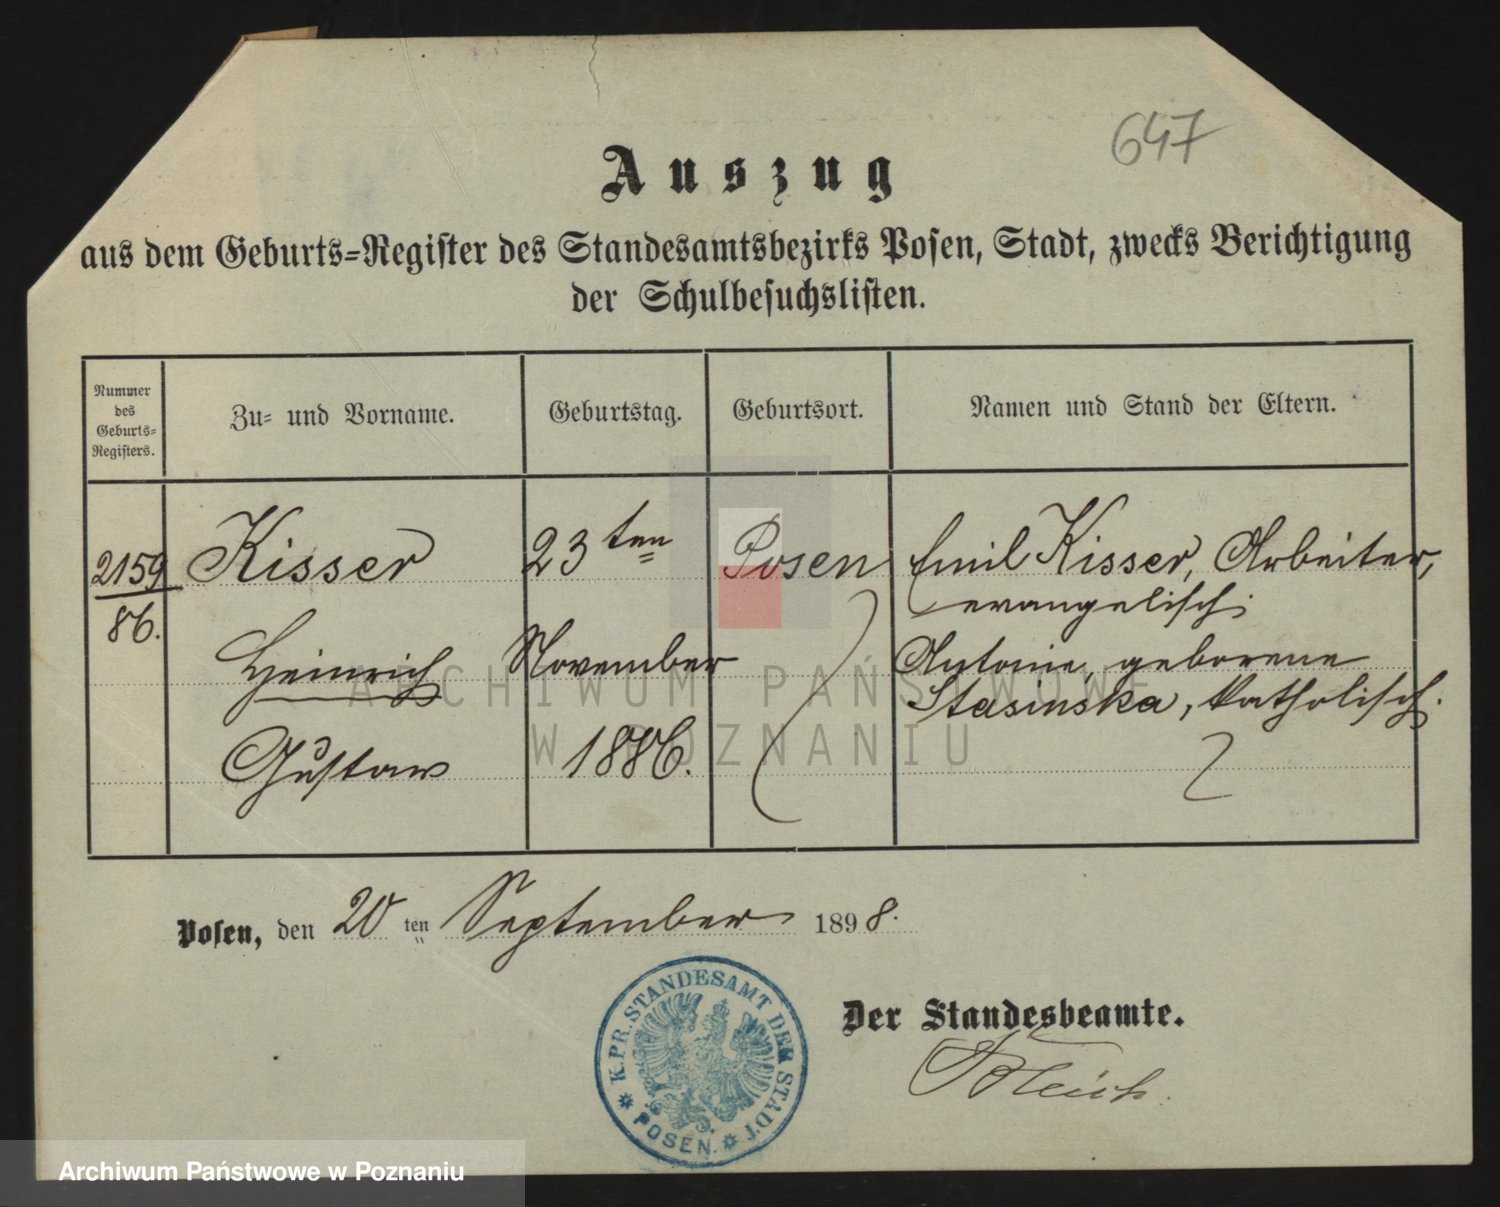 647
Auszug
aus dem Geburts-Register des Standesamtsbezirks Posen, Stadt, zwecks Berichtigung
der Schulbesuchslisten.
Nummer
des
Geburts-
Registers.
Zu- und Vorname.
Geburtstag.
Geburtsort.
Namen und Stand der Eltern.
2159
86.
Kisser
Heinrich
Gustav
23ten
November
1886.
Posen
Emil Kisser, Arbeiter,
evangelisch;
Antonie, geborene
Stasinska, katholisch.
ARCHIWUM PAŃSTWOWE
W POZNANIU
Posen, den 20ten September 1898.
K.PR.STANDESAMT DER STADT
POSEN.
Der Standesbeamte.
Archiwum Państwowe w Poznaniu